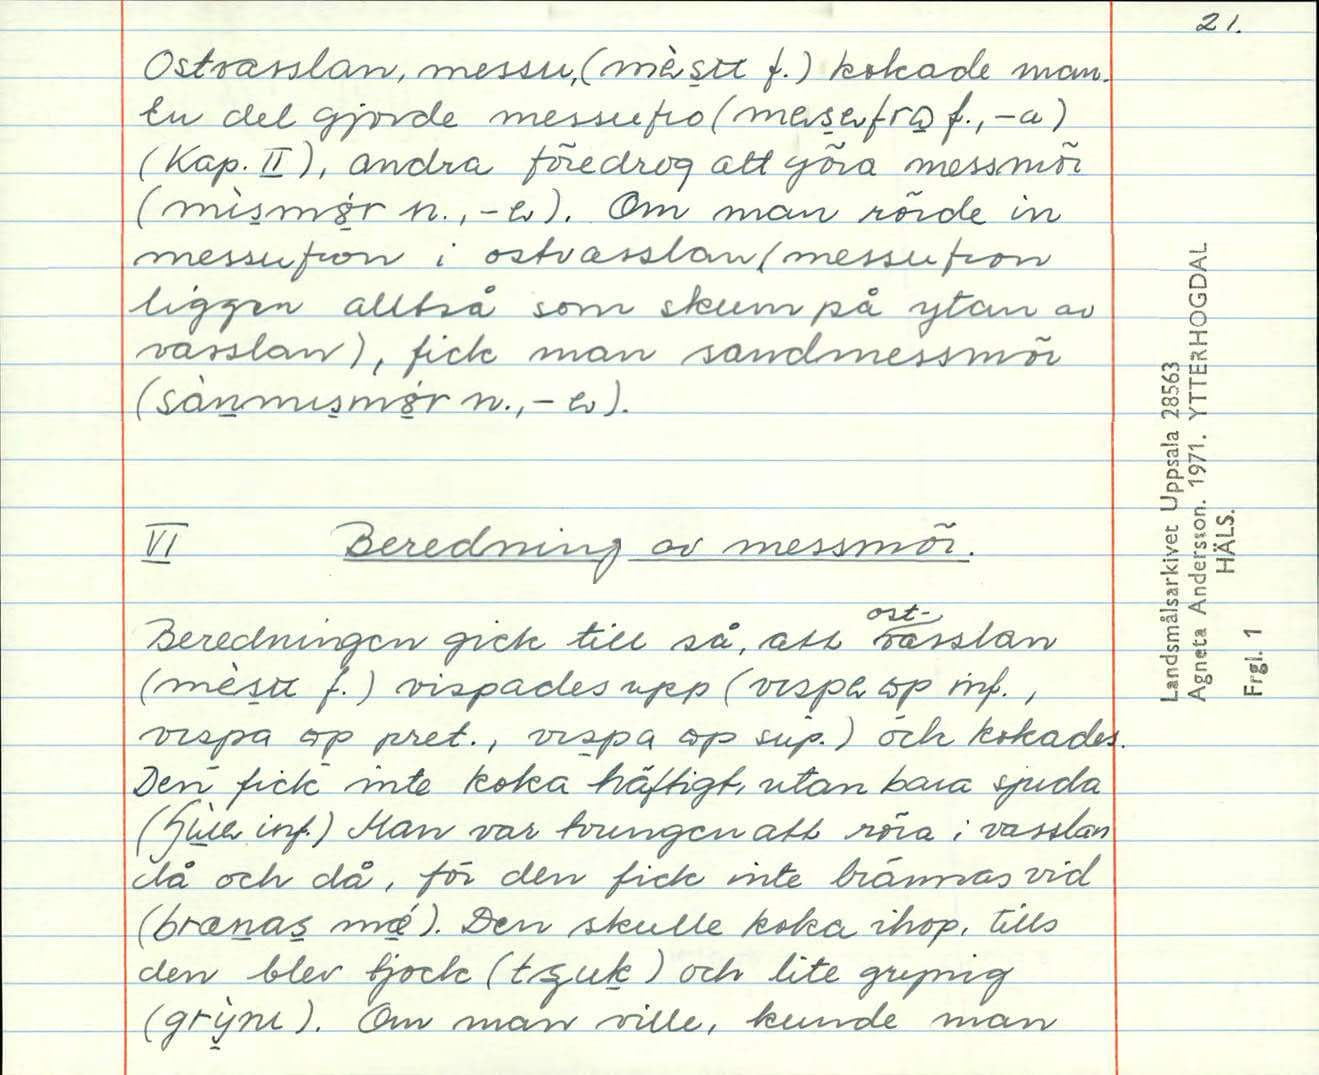 21.
Ostvasslan, messu, (mèsu f.) kokade man.
En del gjorde messufro (mesefrω f., -a)
(Kap. II), andra föredrog att göra messmör
(mìsmör n., -e). Om man rörde in
messufron i ostvasslan (messufron
ligger alltså som skum på ytan av
vasslan), fick man sandmessmör
(sànmɩsmör n., -e).
VI Beredning av messmör.
Beredningen gick till så, att ost-vasslan
(mèsu f.) vispades upp (vɩspe ωp inf.,
vɩspa ωp pret., vɩspa ωp sup.) och kokades.
Den fick inte koka häftigt, utan bara sjuda
(inf.) Man var tvungen att röra i vasslan
då och då, för den fick inte brännas vid
(brænas mæ). Den skulle koka ihop, tills
den blev tjock (tʂuk) och lite grynig
(grỳnɩ). Om man ville, kunde man
Landsmålsarkivet Uppsala 28563
Agneta Andersson. 1971. YTTERHOGDAL
HÄLS.
Frgl. 1